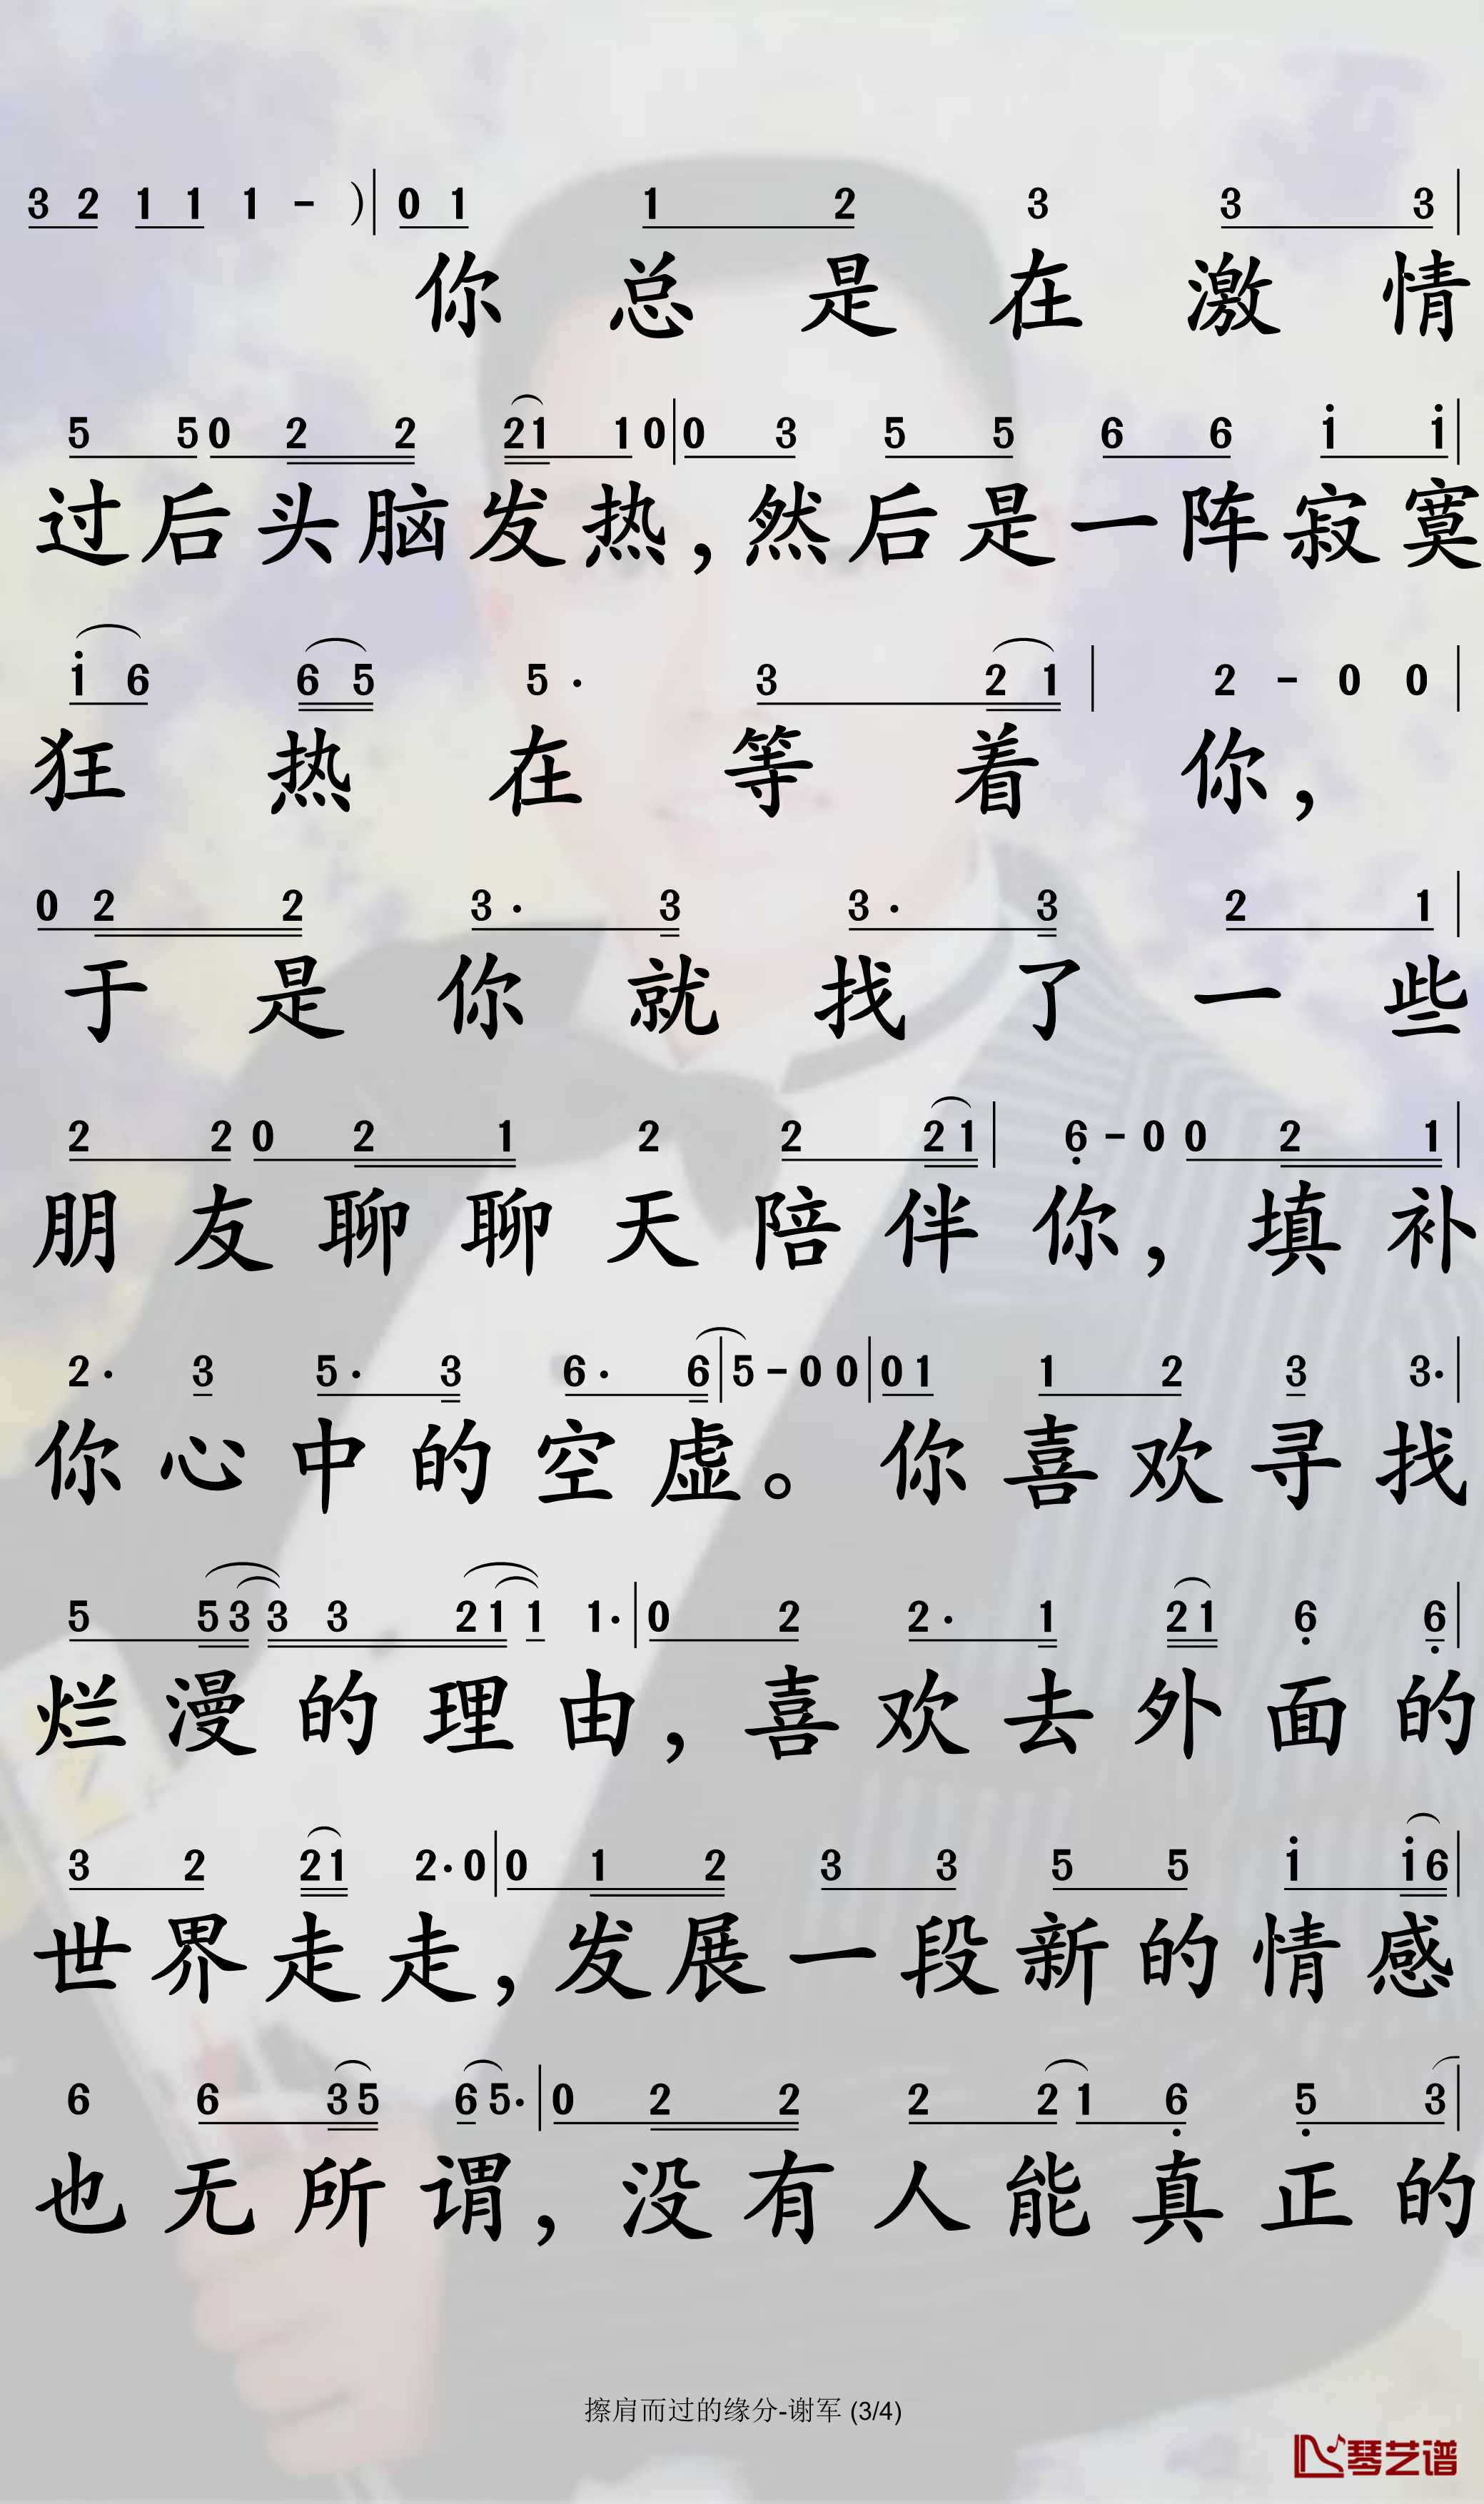 3 2 1 1 1 - ) | 0 1 1 2 3 3 3 |
你总是在激情
5 5 0 2 2 2 1 1 0 | 0 3 5 5 6 6 i i |
过后头脑发热,然后是一阵寂寞
i 6 6 5 5 · 3 2 1 | 2 - 0 0 |
狂热在等着你,
0 2 2 3 · 3 3 · 3 2 1 |
于是你就找了一些
2 2 0 2 1 2 2 2 1 | 6 - 0 0 2 1 |
朋友聊聊天陪伴你,填补
2 · 3 5 · 3 6 · 6 | 5 - 0 0 | 0 1 1 2 3 3 · |
你心中的空虚。你喜欢寻找
5 5 3 3 3 2 1 1 1 · | 0 2 2 · 1 2 1 6 6 |
烂漫的理由,喜欢去外面的
3 2 2 1 2 · 0 | 0 1 2 3 3 5 5 i i 6 |
世界走走,发展一段新的情感
6 6 3 5 6 5 · | 0 2 2 2 2 1 6 5 3 |
也无所谓,没有人能真正的
擦肩而过的缘分-谢军 (3/4)
琴艺谱